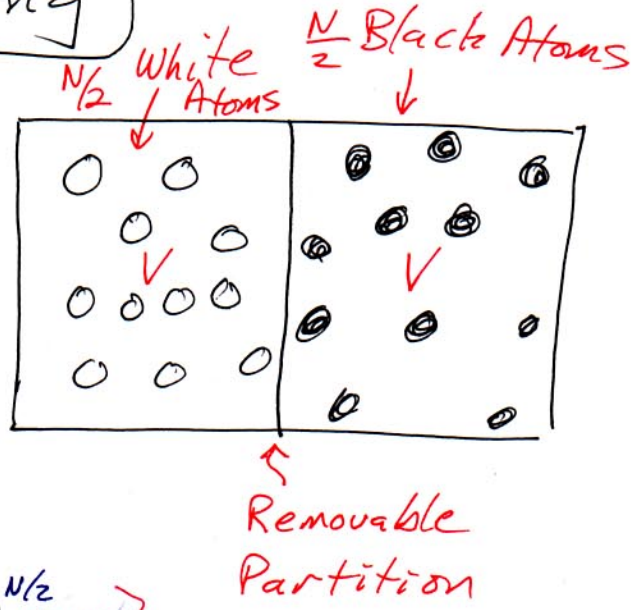 N/2 White Atoms
N/2 Black Atoms
V
V
Removable
Partition
N/2